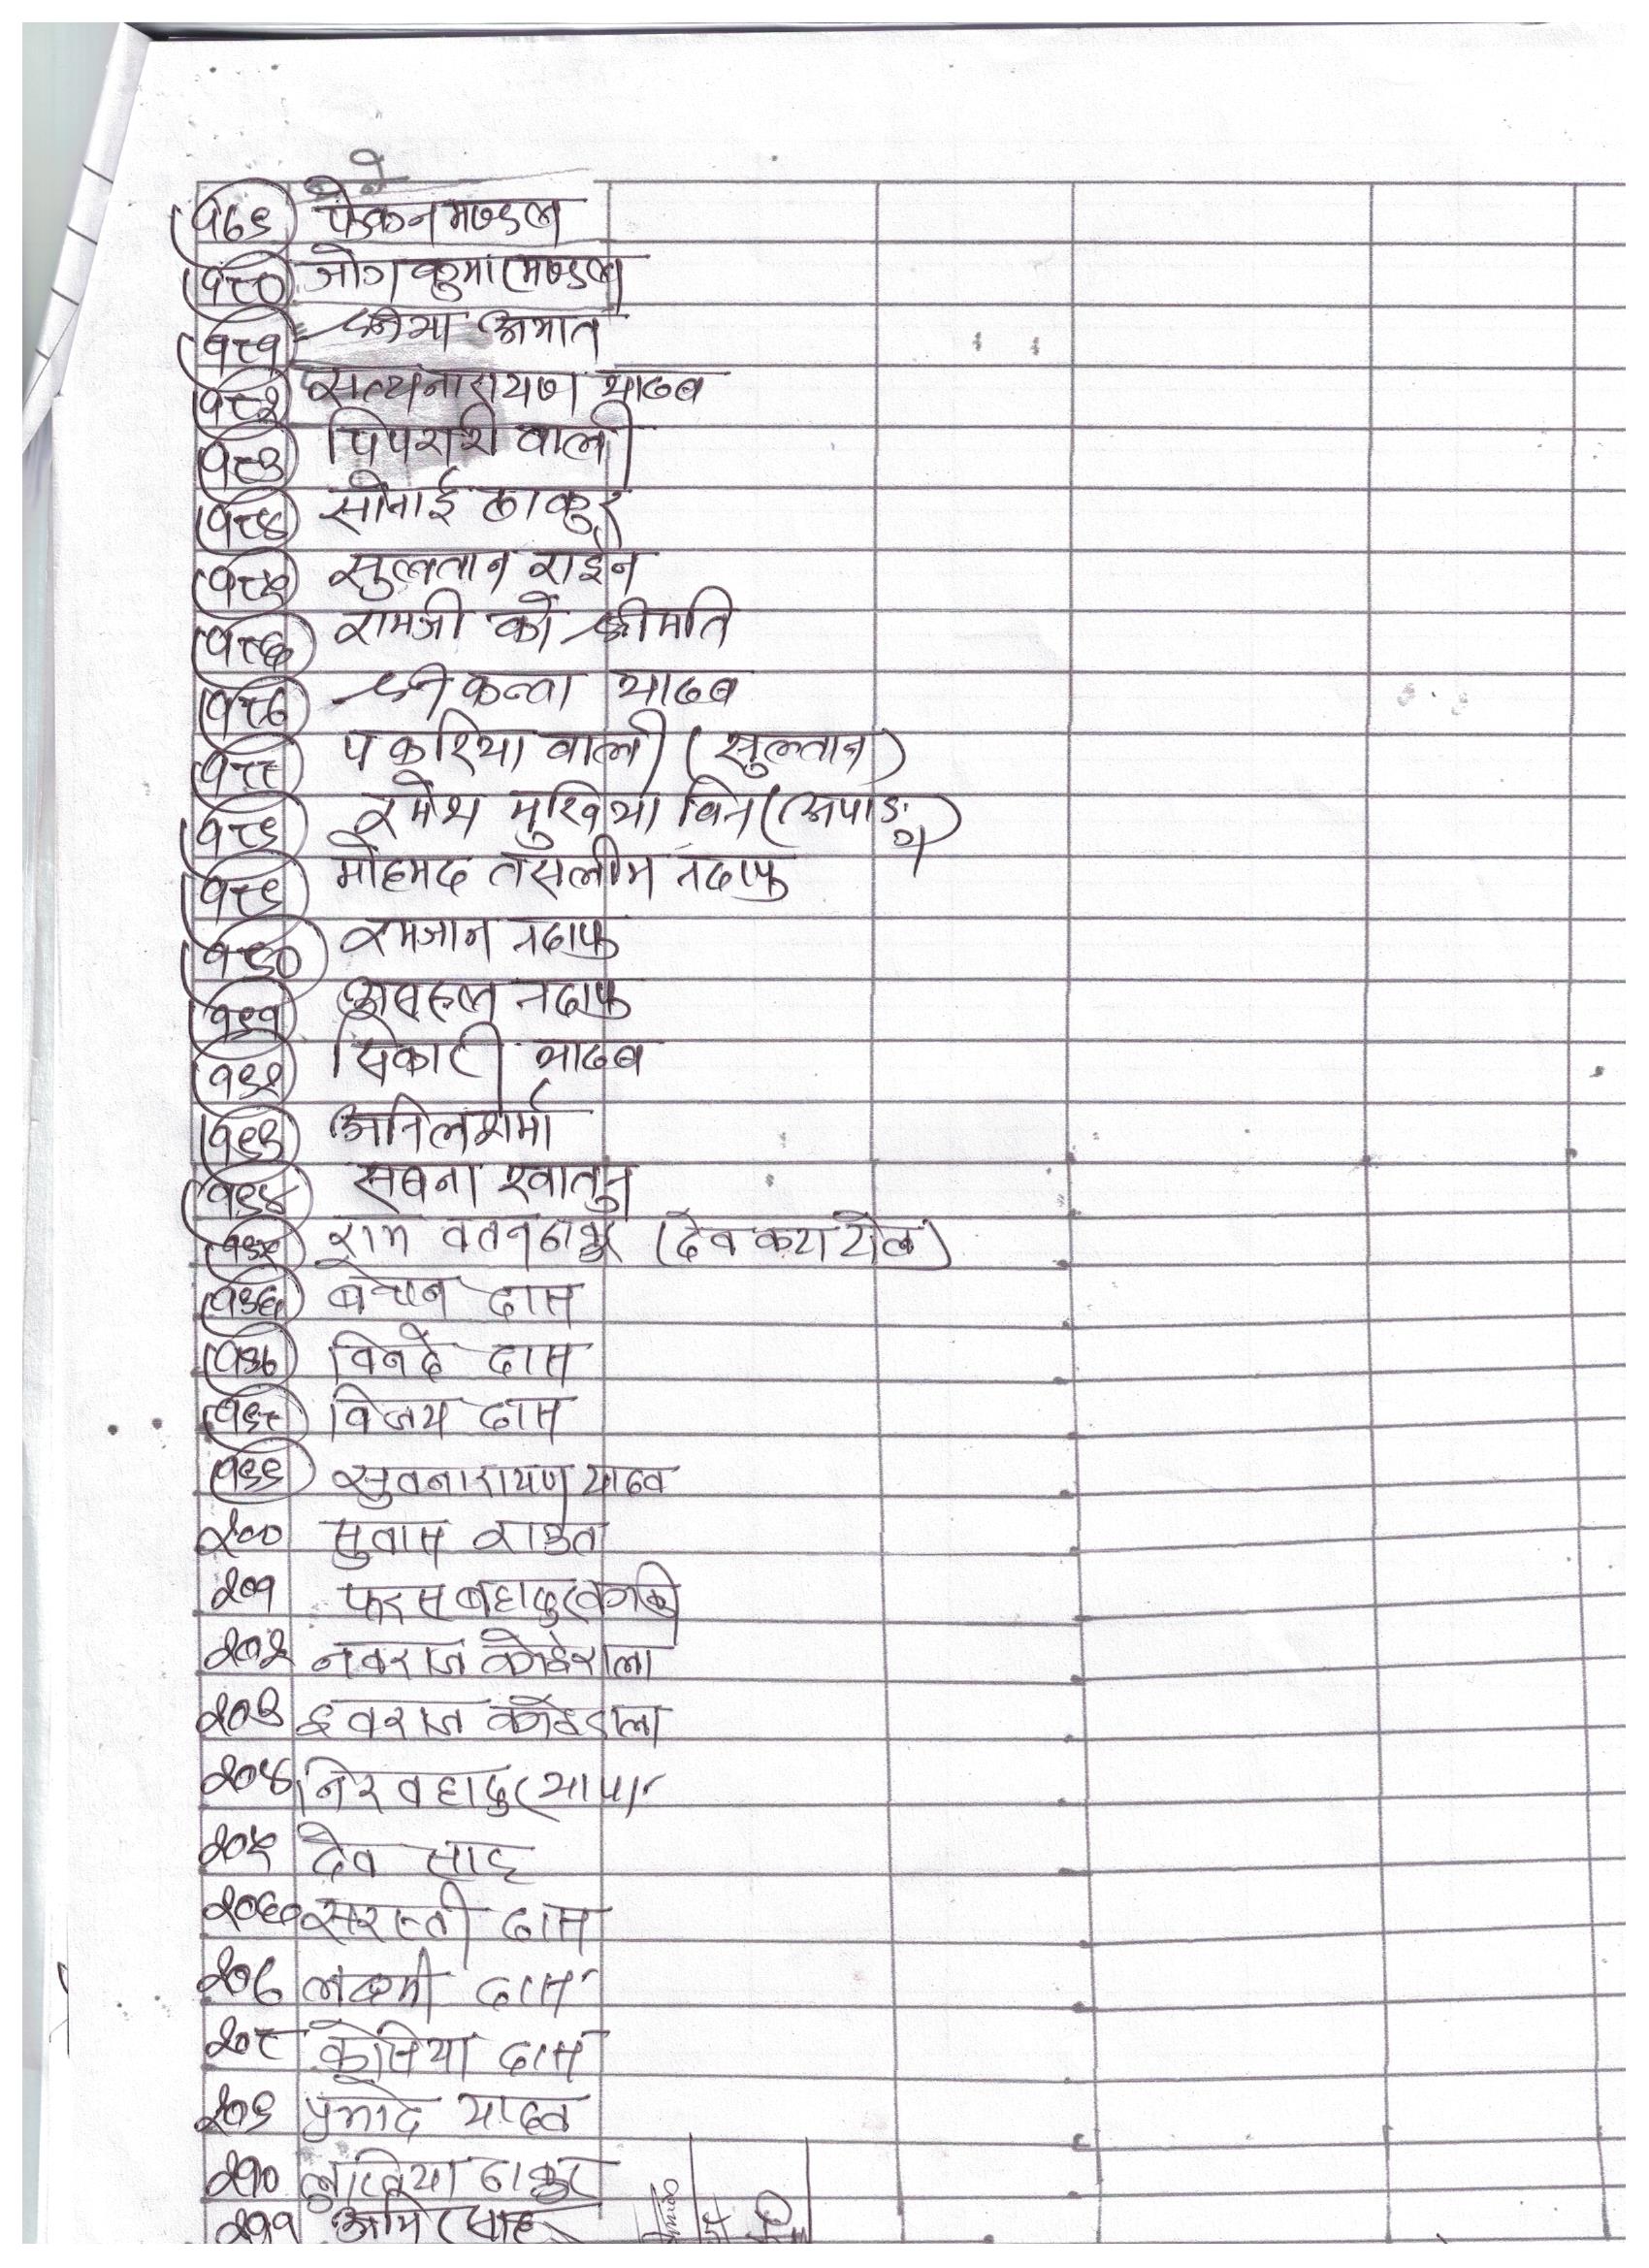 १७९ पेकन मण्डल
१८० जोग कुमार मण्डल
१८१ अमात
१८२ सत्यनारायण यादब
१८३ पिपराही वाली
१८४ सोनाई ठाकुर
१८५ सुलतान राईन
१८६ रामजी को श्रीमति
१८७ श्री कन्ता यादब
१८८ पकरिया वाली (सुल्तान)
१८९ रमेश मुखिया विन (अपाङ्ग)
१८९ मोहमद तसलीम नदाफ
१८९० रमजान नदाफ
१९१ नदाफ
१९२ सिकारी यादब
१९३ अनिल शर्मा
१९४ सबना खातुन
१९५ राम वतन ठाकुर
१९६ बेचन दास
१९७ विनदे दास
१९८ विजय दास
१९९ सुवनारायण यादव
२०० सुवास राउत
२०१ बहादुर कार्की
२०२ नवराज कोईराला
२०३ कोईराला
२०४ बहादुर थापा
२०५ देव साह
२०६ सरस्ती दास
२०७ लक्ष्मी दास
२०८ दास
२०९ प्रमोद यादव
२१० ठाकुर
२११ साह